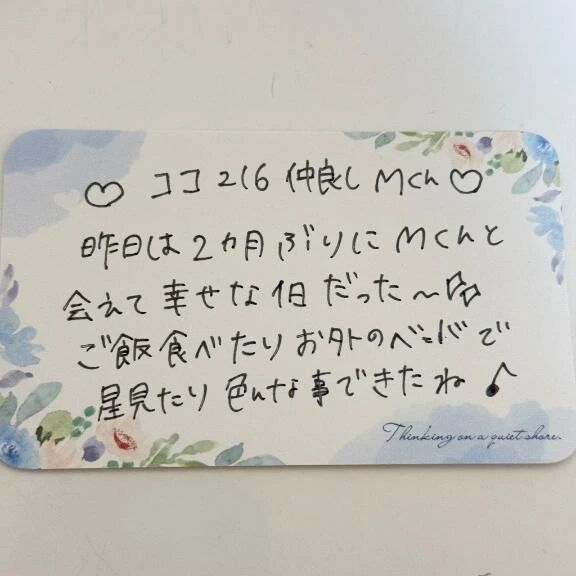 ♡ ココ216 仲良し Mch ♡
昨日は2カ月ぶりにMchと
会えて幸せな1日だった〜☆☆
ご飯食べたりお外のベンチで
星見たり色んな事できたね♪
Thinking on a quiet shore.